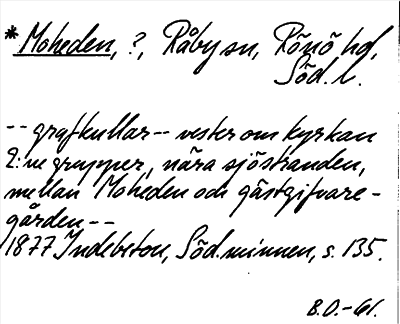 * Moheden, ?, Råby sn, Rönö hd,
Söd. l.
-- grafkullar -- vester om kyrkan
2:ne grupper, nära sjöstranden,
mellan Moheden och gästgifvare-
gården --
1877 Indebetou, Söd. minnen, s. 135.
B.O.-61.